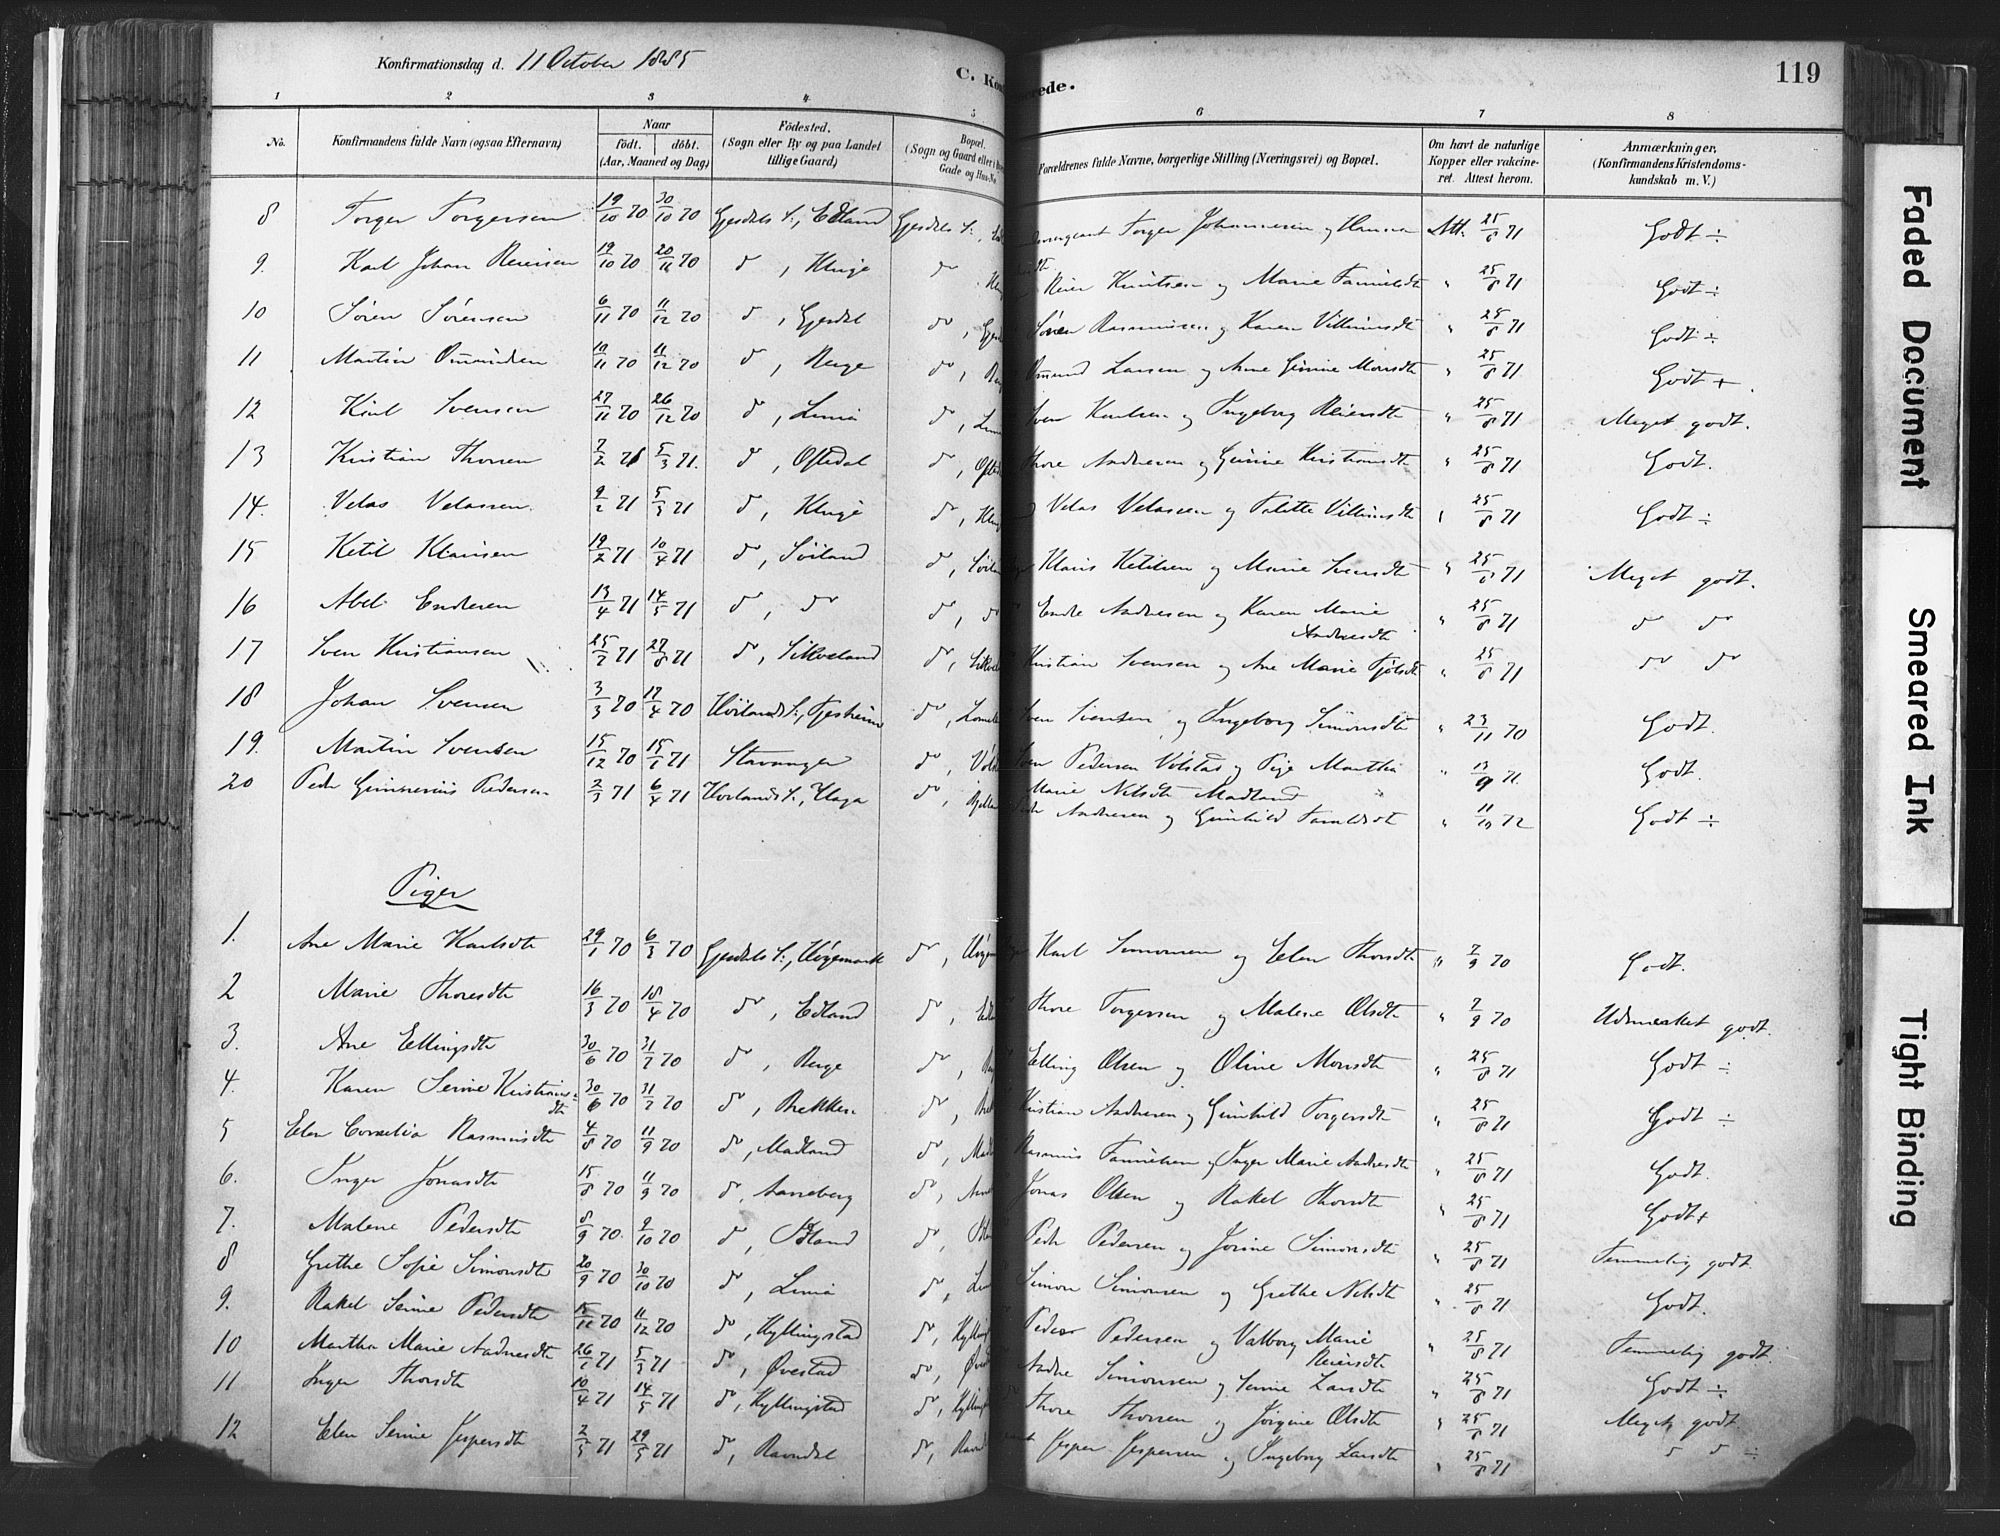 Konfirmationsdag d. 11 October 1885
C. Kon
erede.
119
1 2 3 4 5 6 7 8
No. Konfirmandens fulde Navn (ogsaa Efternavn) Naar födt. döbt. (Aar, Maaned og Dag) Födested. (Sogn eller By og paa Landet tillige Gaard) Bopæl. (Sogn og Gaard eller i Gade og Hus-No Forældrenes fulde Navne, borgerlige Stilling (Næringsvei) og Bopæl. Om havt de naturlige Kopper eller vakcineret. Attest herom. Anmærkninger, (Konfirmandens Kristendomskundskab m. V.)
8 Torger Torgersen 19/10 70 30/10 70 Gjesdals S:, Edland Gjesdals S:, Torger Johannesen og Hanna Att. 25/8 71 Godt ÷
9. Karl Johan Reiersen 19/10 70 20/11 70 do, Kluge do Reier Knutsen og Marie 25/8 71 Godt ÷
10 Sören Sörensen 6/11 70 11/12 70 do, Gjesdal do, Gjesd Sören Rasmusen og Karen Villumsdt " 25/8 71 Godt ÷
11 Martin Omundsen 10/11 70 11/12 70 do, Berge do, Omund Larsen og Ane Gurine Monsdt " 25/8 71 Godt +
12 Karl Svensen 27/11 70 26/12 70 do, Limi do, Lim Sven Karlsen og Ingeborg Reiersdt " 25/8 71 Meget godt.
13 Kristian Thorsen 2/2 71 5/3 71. do, Oftedal do, Ofted Thore Andresen og Gurine Kristiansdt " 25/8 71 Godt.
14. Velas Velassen 9/2 71 5/3 71 do, Kluge do, Klug Velas Velassen og Tolette Villumsdt " 25/8 71 Godt ÷
15 Ketil Klausen 19/2 71 10/4 71 do, Söiland do, Söila Klaus Ketilsen og Marie Svensdt " 25/8 71 Meget godt.
16 Abel Endresen 13/4 71 14/5 71 do, do do, do Endre Andresen og Karen Marie Andresdt " 25/8 71 do do
17 Sven Kristiansen 25/7 71 27/8 71 do, Sikveland do, Sikvel Kristian Svensen og Ane Marie Fjölsdt " 25/8 71 do do
18 Johan Svensen 3/3 70 17/4 70 Höilands S:, Tjesheim do, Sven Svensen og Ingeborg Simonsdt " 23/11 70 Godt.
19. Martin Svensen 15/12 70 15/1 71 Stavanger do, Völst Sven Pedersen Völstad og Pige Martha Marie Nilsdt Madland " 13/9 71 Godt.
20 Peder Gunnerius Pedersen 2/3 71 6/4 71 Höilands S:, Haga do, Andresen og Gunhild " 11/10 72 Godt ÷
Piger
1. Ane Marie Karlsdt 29/1 70 6/3 70 Gjesdals S:, Högemark do, Högem Karl Simonsen og Elen Thorsdt " 2/9 70 Godt.
2 Marie Thoresdt 16/3 70 18/4 70 do, Edland do, Edl Thore Torgersen og Malene Olsdt " 2/9 70 Udmærket godt.
3. Ane Ellingsdt 30/6 70 31/7 70 do, Berge do, Elling Olsen og Oline Monsdt " 25/8 71 Godt ÷
4. Karen Serine Kristiansdt 30/6 70 31/7 70 do, Brekken do, Brek Kristian Andresen og Gunhild Torgersdt " 25/8 71 Godt ÷
5 Elen Cornelia Rasmusdt 4/8 70 11/9 70 do, Madland do, Madl Rasmus og Inger Marie Andresdt " 25/8 71 Godt.
6. Inger Jonasdt 15/8 70 11/9 70 do, Auneberg do, Aune Jonas Olsen og Rakel Thorsdt " 25/8 71 Godt +
7. Malene Pedersdt 8/9 70. 2/10 70 do, do, Peder Pedersen og Jorine Simonsdt " 25/8 71 Temmelig godt.
8 Grethe Sofie Simonsdt 20/9 70 30/10 70 do, Limi do, Lim Simon Simonsen og Grethe Nilsdt " 25/8 71 Godt.
9. Rakel Serine Pedersdt 15/11 70 11/12 70 do, Kyllingstad do, Kylling Peder Pedersen og Valborg Marie Reiersdt " 25/8 71 Temmelig godt.
10 Martha Marie Andresdt 26/1 71 5/3 71 do, Övestad do, Öves Andre Simonsen og Serine Larsdt " 25/8 71 Godt ÷
11 Inger Thorsdt 10/4 71 14/5 71 do, Kyllingstad do, Kylling Thore Thorsen og Jörgine Olsdt " 25/8 71 Meget godt.
12 Elen Serine Jespersdt 2/5 71 29/5 71 do, Ravndal do, Ravnd Jesper Jespersen og Ingeborg Larsdt " 25/8 71 do do ÷
Faded Document
Smeared Ink
Tight Binding